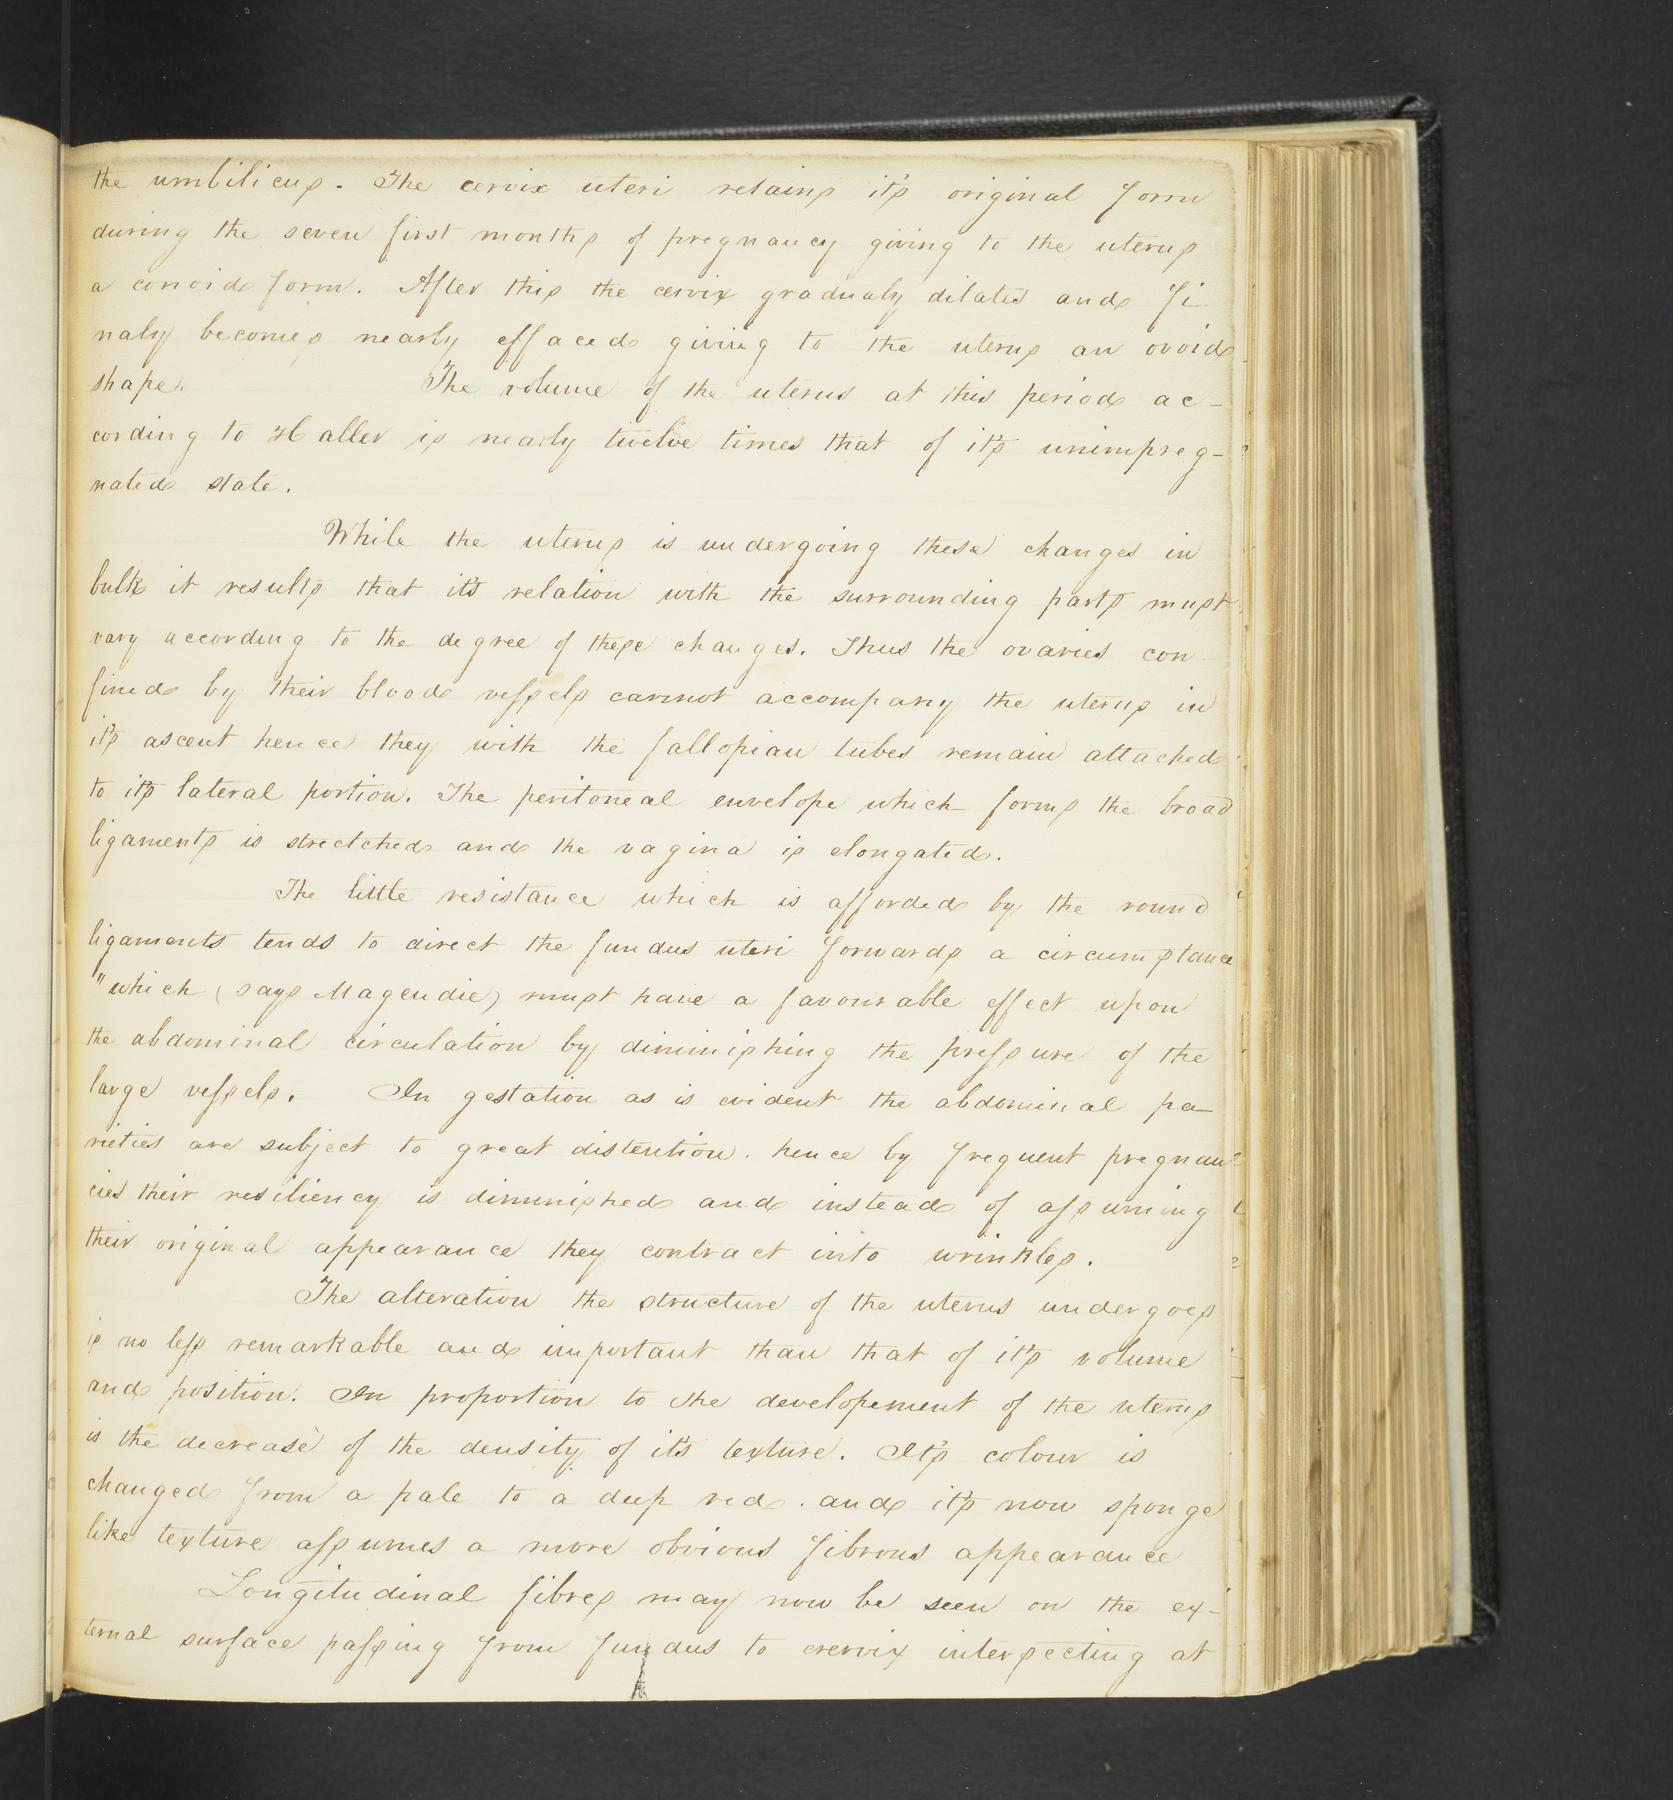 the umbilicus. The cervix uteri retains it's original form
during the seven first months of pregnancy giving to the uterus
a conoid form. After this the cervix gradualy dilates and fi
naly becomes nearly effaced giving to the uterus an ovoid
shape. The volume of the uterus at this period ac-
cording to Haller is nearly twelve times that of it's unimpreg-
nated state.
While the uterus is undergoing these changes in
bulk it results that it's relation with the surrounding parts must
vary according to the degree of these changes. Thus the ovaries con-
fined by their blood vessels cannot accompany the uterus in
it's ascent hence they with the fallopian tubes remain attached
to it's lateral portion. The peritoneal envelope which forms the broad
ligaments is strectched and the vagina is elongated.
The little resistance which is afforded by the round
ligaments tends to direct the fundus uteri forwards a circumstance
"which (says Magendie) must have a favourable effect upon
the abdominal circulation by diminishing the pressure of the
large vessels. In gestation as is evident the abdominal pa-
rieties are subject to great distention. hence by frequent pregnan-
cies their resiliency is diminished and instead of assuming
their original appearance they contract into wrinkles.
The alteration the structure of the uterus undergoes
is no less remarkable and important than that of it's volume
and position. In proportion to the developement of the uterus
is the decrease of the density of it's texture. It's colour is
changed from a pale to a deep red. and it's now sponge
like texture assumes a more obvious fibrous appearance
Longitudinal fibres may now be seen on the ex-
ternal surface passing from fundus to crervix intersecting at